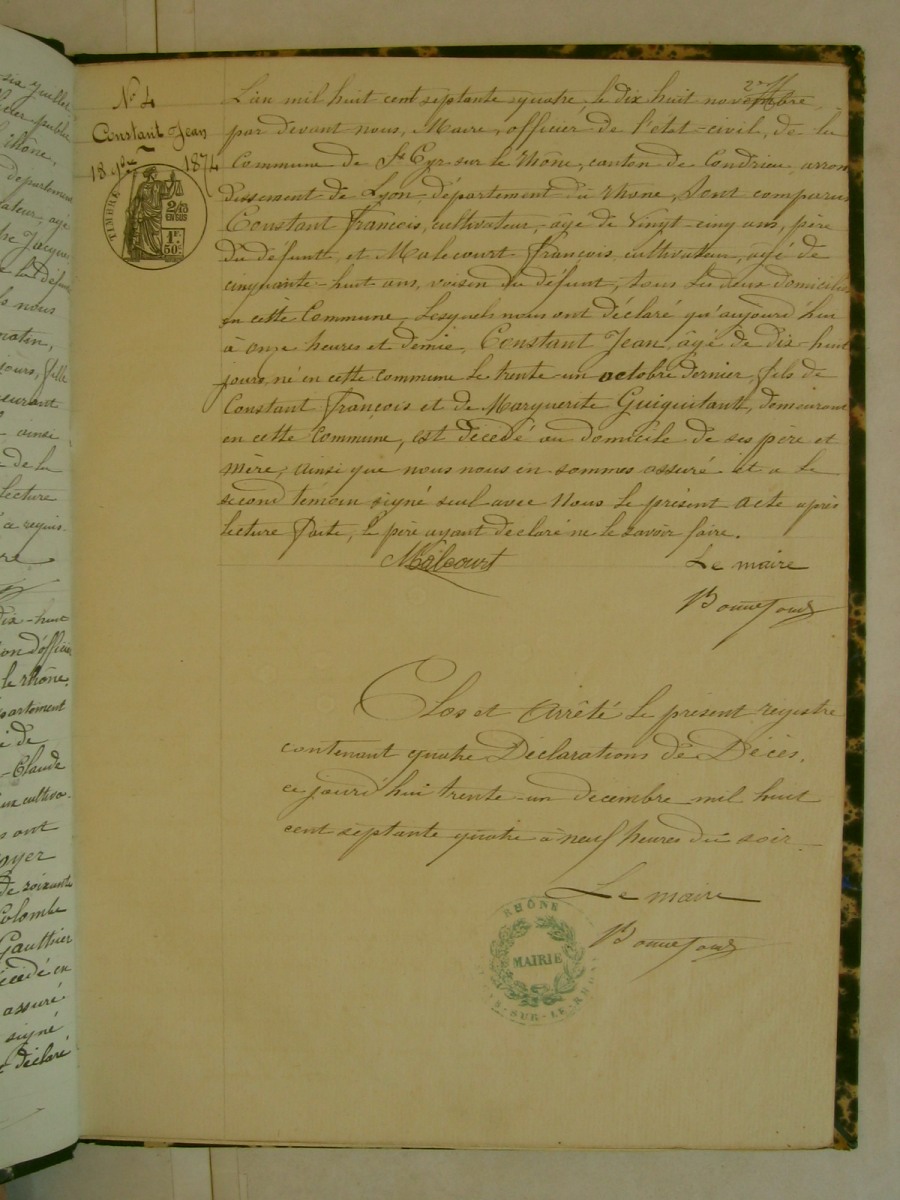 N° 4
Constant Jean
18 9bre 1874
TIMBRE
2/10
EN SUS
1F.
50c.
L'an mil huit cent septante quatre, le dix huit novembre,
par devant nous, Maire, officier de l'état-civil, de la
Commune de St Cyr sur le Rhône, canton de Condrieu, arron
dissement de Lyon, département du Rhône, sont comparus
Constant François, cultivateur, âgé de vingt-cinq ans, père
du défunt, et Malecourt François cultivateur, âgé de
cinquante-huit ans, voisin du défunt, tous les deux domiciliés
en cette Commune, Lesquels nous ont déclaré qu'aujourd'hui
à onze heures et demie, Constant Jean, âgé de dix-huit
jours, né en cette commune le trente-un octobre dernier, fils de
Constant François et de Marguerite Guiguitant, demeurant
en cette commune, est décédé au domicile de ses père et
mère; ainsi que nous nous en sommes assuré et a le
second témoin signé seul avec Nous le présent acte après
lecture faite, le père ayant déclaré ne le savoir faire.
Malcourt
Le maire
Bonnefond
Clos et Arrêté le présent registre
contenant quatre Déclarations de Décès,
ce jourd'hui trente-un decembre mil huit
cent septante quatre à neuf heures du soir.
Le maire
Bonnefond
RHÔNE
MAIRIE
SUR-LE-RHÔNE
six Juillet
Rhône,
Jacques
nous
matin,
jours, fille
ainsi
de la
lecture
a requis
dix-huit
le rhône,
de
Claude
ont
de soixante
Colombe
Gauthier
décédé en
assuré
signé
déclaré